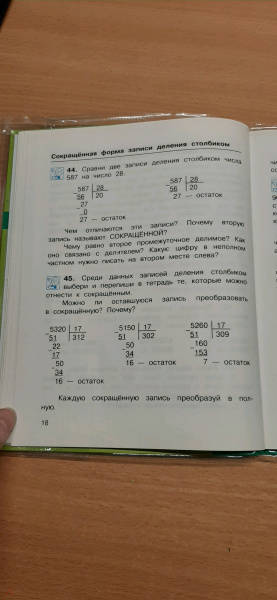 Сокращённая форма записи деления столбиком
44. Сравни две записи деления столбиком числа
587 на число 28.
587 28 587 28
56 20 56 20
27 27 — остаток
0
27 — остаток
Чем отличаются эти записи? Почему вторую
запись называют СОКРАЩЁННОЙ?
Чему равно второе промежуточное делимое? Как
оно связано с делителем? Какую цифру в неполном
частном нужно писать на втором месте слева?
45. Среди данных записей деления столбиком
выбери и перепиши в тетрадь те, которые можно
отнести к сокращённым.
Можно ли оставшуюся запись преобразовать
в сокращённую? Почему?
5320 17 5150 17 5260 17
51 312 51 302 51 309
22 50 160
17 34 153
50 16 — остаток 7 — остаток
34
16 — остаток
Каждую сокращённую запись преобразуй в пол-
ную.
18